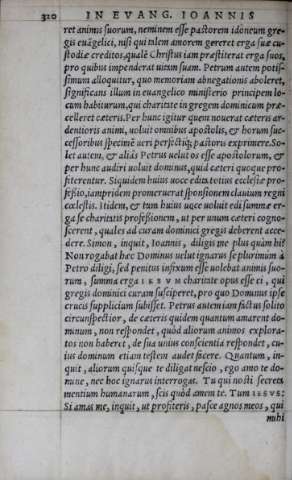 320 IN EVANG. IOANNIS
ret animis suorum, neminem esse pastorem idoneum gre-
gis euāgelici, nisi qui talem amorem gereret erga suæ cu-
stodiæ creditos, qualē Christus iam præstiterat erga suos,
pro quibus impenderat uitam suam. Petrum autem potis-
simum alloquitur, quo memoriam abnegationis aboleret,
significans illum in euangelico ministerio principem lo-
cum habiturum, qui charitate in gregem dominicum præ-
celleret cæteris. Per hunc igitur quem nouerat cæteris ar-
dentioris animi, uoluit omnibus apostolis, & horum suc-
cessoribus specimē ueri perfectiq; pastoris exprimere. So-
let autem, & aliàs Petrus uelut os esse apostolorum, &
per hunc audiri uoluit dominus, quid cæteri quoque pro-
fiterentur. Siquidem huius uoce edita totius ecclesiæ pro-
fessio, iampridem promeruerat sponsionem clauium regni
cœlestis. Itidem, & tum huius uoce uoluit edi summæ er-
ga se charitatis professionem, ut per unum cæteri cogno-
scerent, quales ad curam dominici gregis deberent acce-
dere. Simon, inquit, Ioannis, diligis me plus quàm hi?
Non rogabat hæc Dominus uelut ignarus se plurimùm à
Petro diligi, sed penitus infixum esse uolebat animis suo-
rum, summa erga IESVM charitate opus esse ei, qui
gregis dominici curam susciperet, pro quo Dominus ipse
crucis supplicium subisset. Petrus autem iam factus solito
circunspectior, de cæteris quidem quantum amarent do-
minum, non respondet, quòd aliorum animos explora-
tos non haberet, de sua unius conscientia respondet, cu-
ius dominum etiam testem audet facere. Quantum, in-
quit, aliorum quisque te diligat nescio, ego amo te do-
mine, nec hoc ignarus interrogas. Tu qui nosti secreta
mentium humanarum, scis quòd amem te. Tum IESVS:
Si amas me, inquit, ut profiteris, pasce agnos meos, qui
mihi